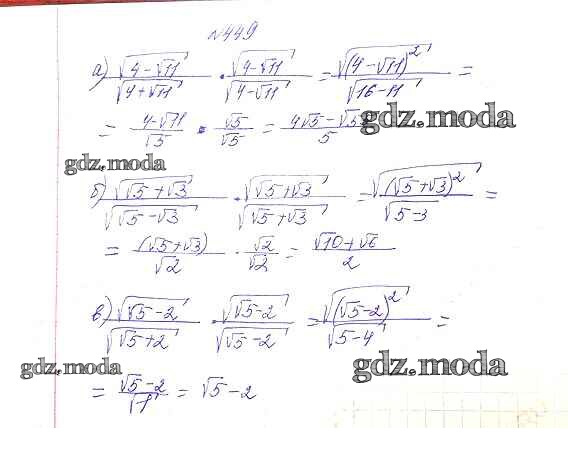 №449
а) √(4-√11)/√(4+√11) · √(4-√11)/√(4-√11) = √((4-√11)²)/√(16-11) =
= (4-√11)/√5 · √5/√5 = (4√5-√55)/5
gdz.moda
gdz.moda
б) √(√5+√3)/√(√5-√3) · √(√5+√3)/√(√5+√3) = √((√5+√3)²)/√(5-3) =
= (√5+√3)/√2 · √2/√2 = (√10+√6)/2
в) √(√5-2)/√(√5+2) · √(√5-2)/√(√5-2) = √((√5-2)²)/√(5-4) =
gdz.moda
gdz.moda
= (√5-2)/√1 = √5-2